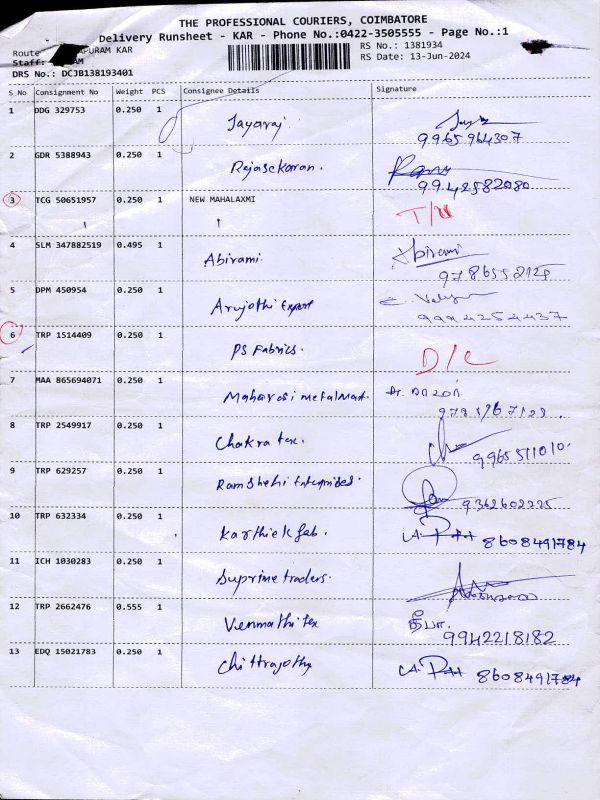 THE PROFESSIONAL COURIERS, COIMBATORE
Delivery Runsheet - KAR - Phone No.:0422-3505555 - Page No.:1
Route PURAM KAR
RS No.: 1381934
Staff: AM
RS Date: 13-Jun-2024
DRS No.: DCJB138193401
S No Consignment No Weight PCS Consignee Details Signature
1 DDG 329753 0.250 1 Jayaraj
9965964307
2 GDR 5388943 0.250 1 Rajasekaran.
9942582080
3 TCG 50651957 0.250 1 NEW MAHALAXMI
4 SLM 347882519 0.495 1 Abirami Abirami
5 DPM 450954 0.250 1 Arujothi Export
9994254437
6 TRP 1514409 0.250 1 PS Fabrics. D/C
7 MAA 865694071 0.250 1
8 TRP 2549917 0.250 1 Chakra tex.
9965511010.
9 TRP 629257 0.250 1
9362602225
10 TRP 632334 0.250 1 Karthick fab. 8608491784
11 ICH 1030283 0.250 1 Suprime traders.
12 TRP 2662476 0.555 1 Venmathi tex தீபா.
9942218182
13 EDQ 15021783 0.250 1 8608491784